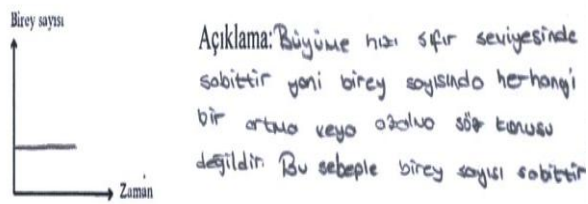 Birey sayısı
Zaman
Açıklama: Büyüme hızı sıfır seviyesinde
sabittir yani birey sayısında herhangi
bir artma veya azalma söz konusu
değildir. Bu sebeple birey sayısı sabittir